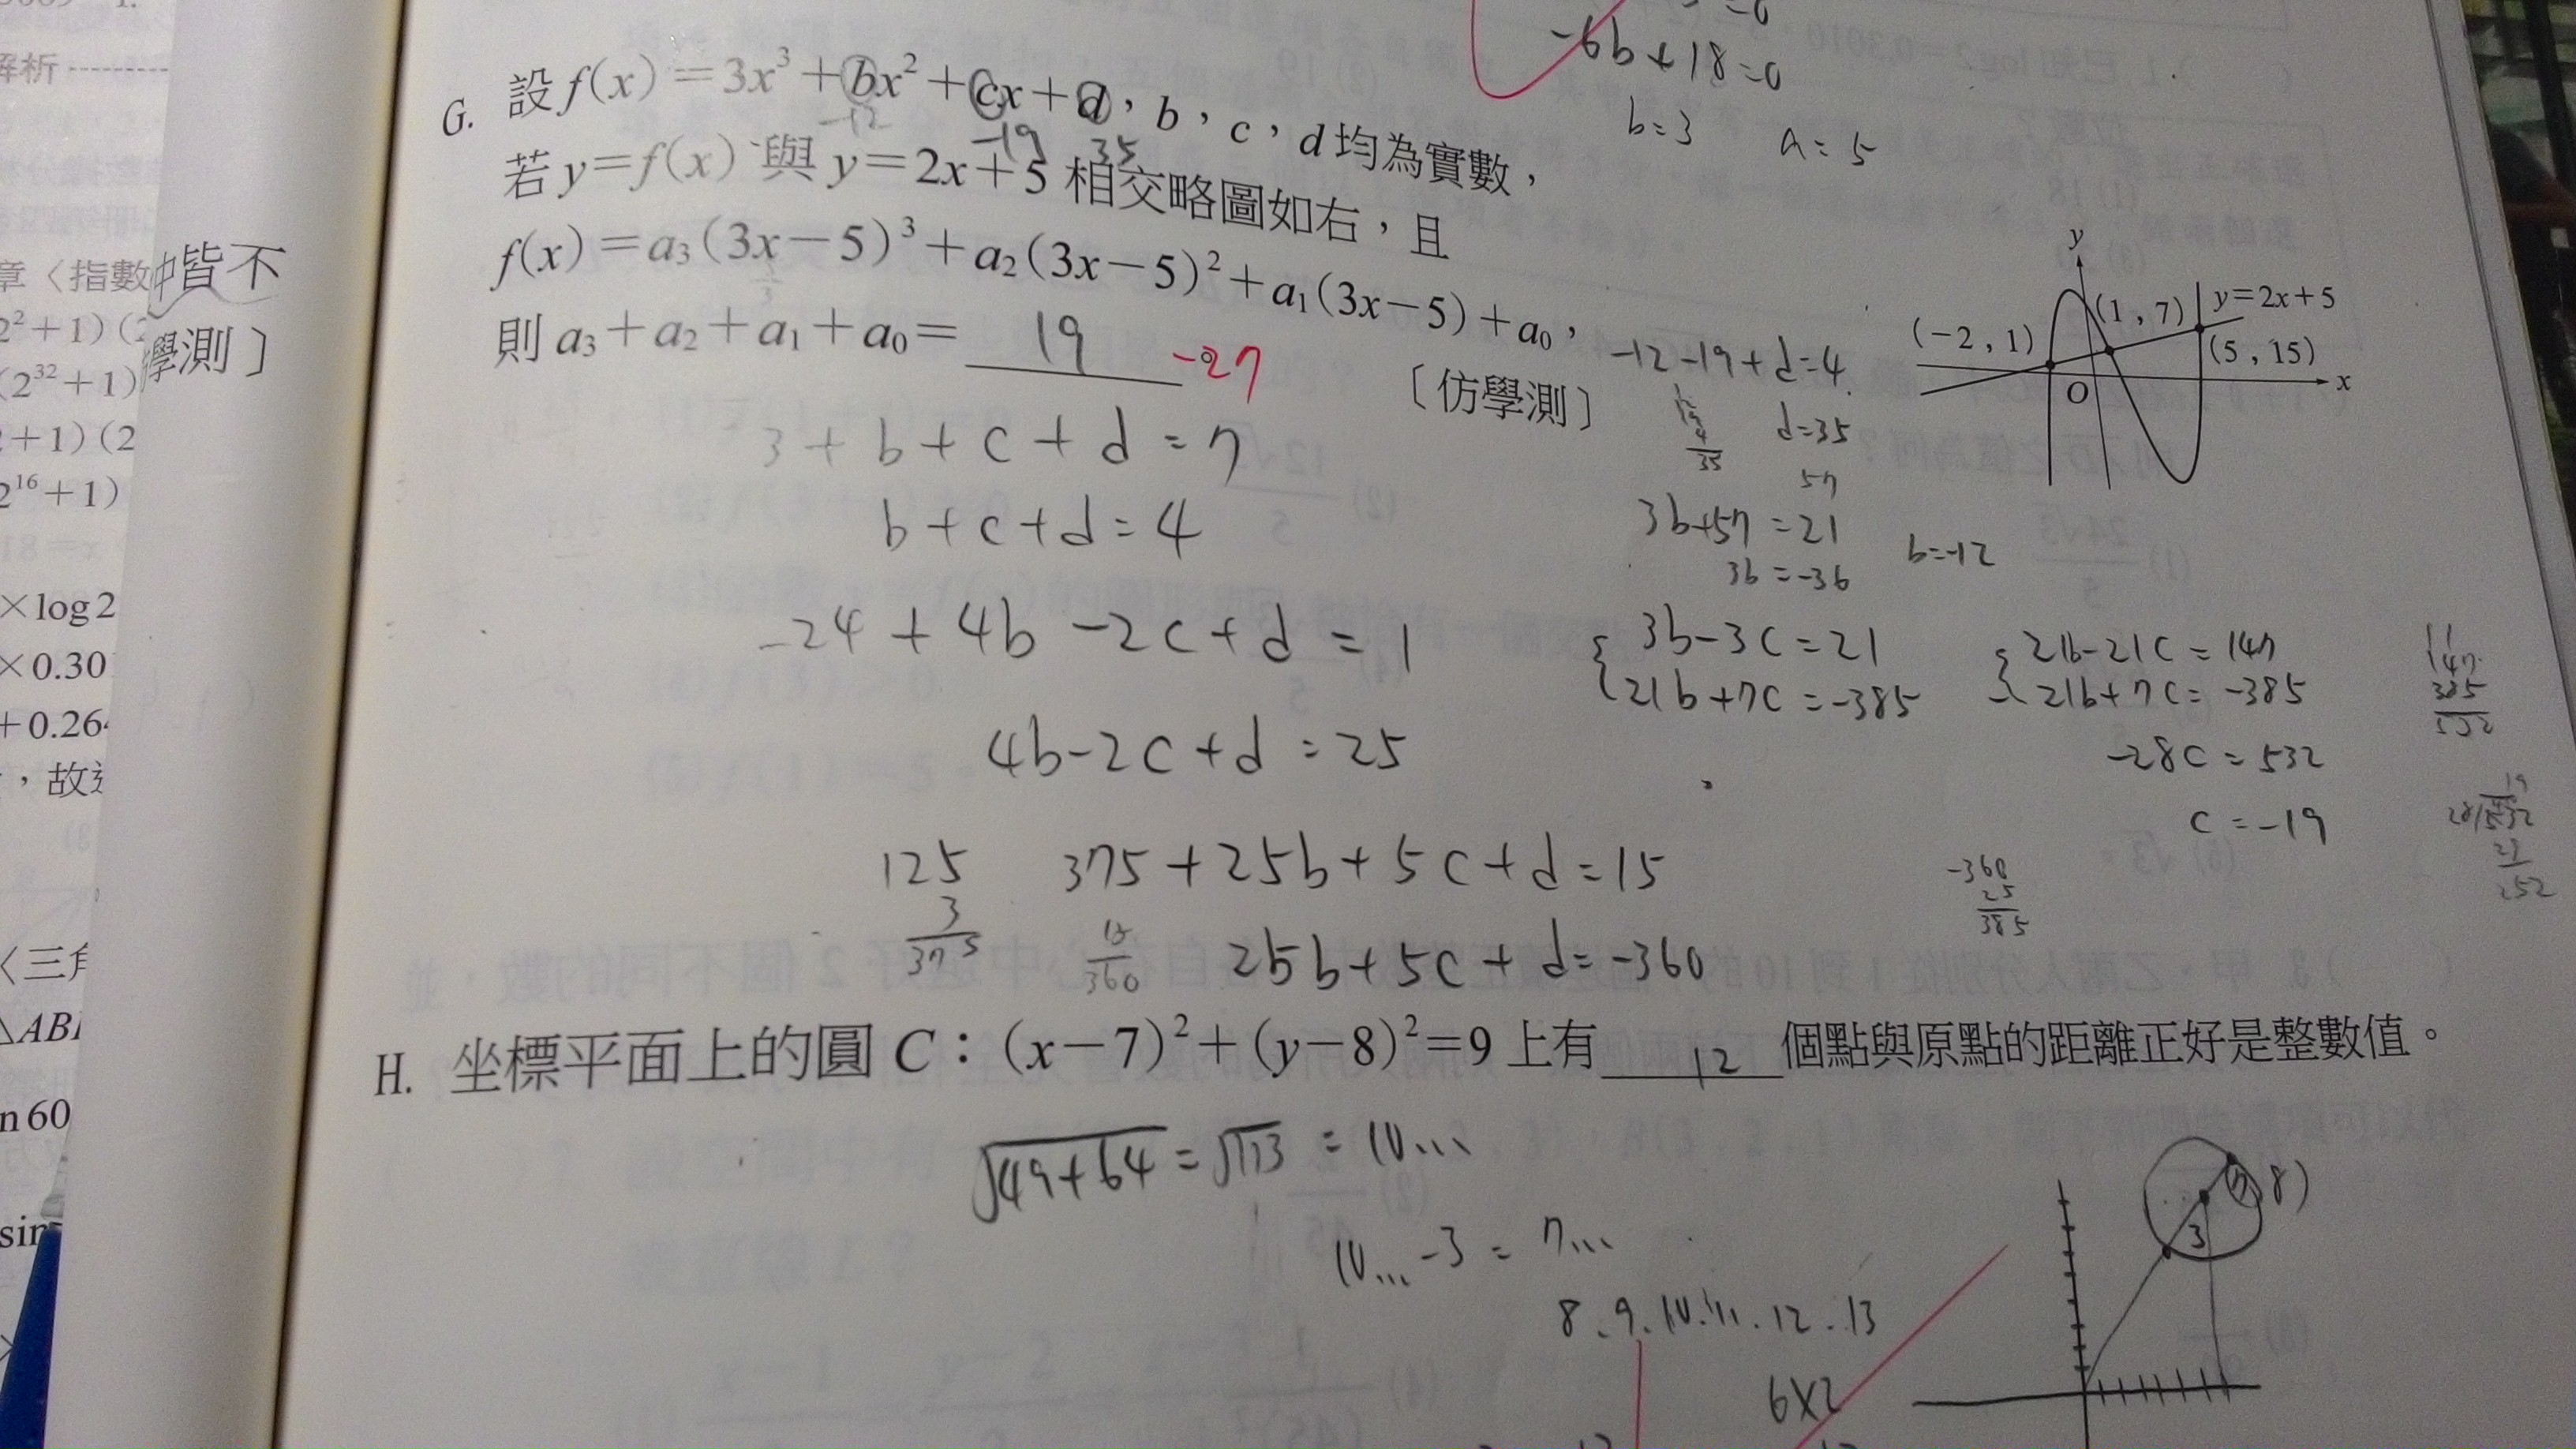 解析
-6b+18=0
b=3 a=5
G. 設 f(x)=3x³+bx²+cx+d，b，c，d 均為實數，
-12 -19 35
若 y=f(x) 與 y=2x+5 相交略圖如右，且
f(x)=a₃(3x-5)³+a₂(3x-5)²+a₁(3x-5)+a₀，
則 a₃+a₂+a₁+a₀= 19 -27
〔仿學測〕
y
(-2，1) (1，7) y=2x+5
(5，15)
O x
3+b+c+d=7
b+c+d=4
-24+4b-2c+d=1
4b-2c+d=25
125
3
375
375+25b+5c+d=15
360
25b+5c+d=-360
-12-19+d=4
d=35
57
3b+57=21
3b=-36 b=-12
3b-3c=21
21b+7c=-385
21b-21c=147
21b+7c=-385
-28c=532
c=-19
147
385
532
-360
25
385
252
H. 坐標平面上的圓 C：(x-7)²+(y-8)²=9 上有 12 個點與原點的距離正好是整數值。
√49+64=√113=10...
10...-3=7...
8.9.10.11.12.13
6×2
3
8)
皆不
學測〕
章〈指數
2²+1)(2
(2³²+1)
+1)(2
2¹⁶+1)
×log2
×0.30
+0.264
，故
〈三角
n60
sin